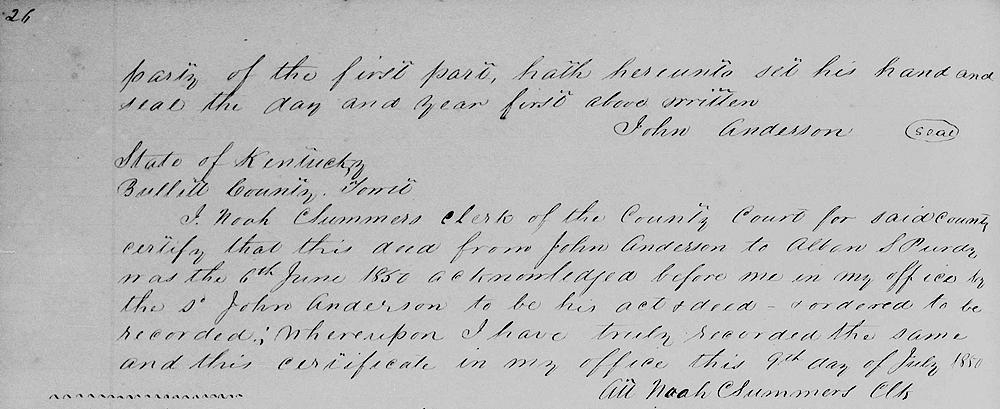 26
party of the first part, hath hereunto set his hand and
seal the day and year first above written
John Anderson (seal)
State of Kentucky
Bullitt County. Towit
I Noah C Summers clerk of the County Court for said county
certify that this deed from John Anderson to Allan S Purdy
was the 6th June 1850 acknowledged before me in my office by
the sd John Anderson to be his act & deed - & ordered to be
recorded; Whereupon I have truly recorded the same
and this certificate in my office this 9th day of July 1850
Att Noah C Summers Clk